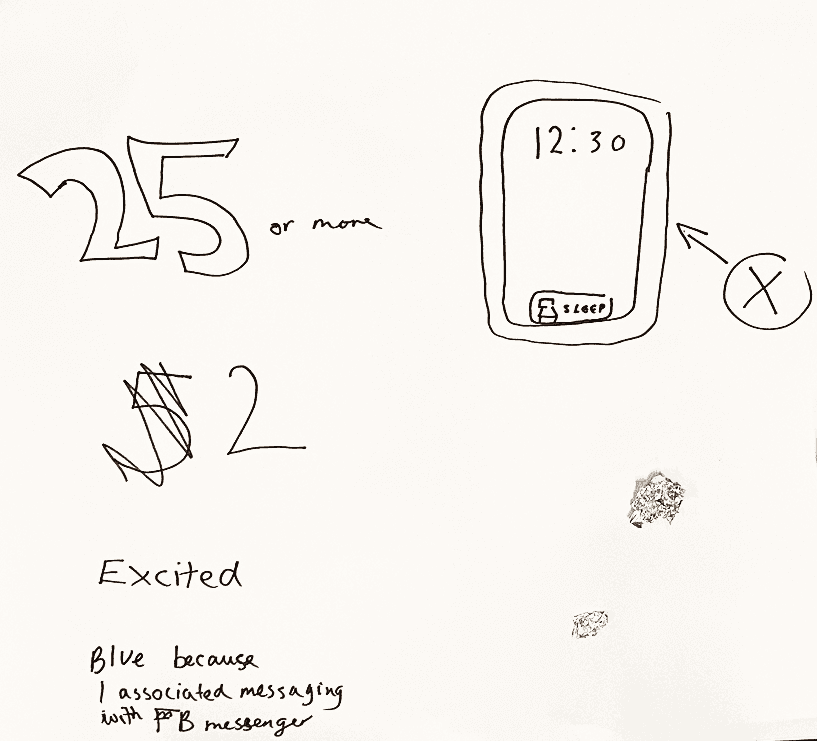 25 or more
12:30
SLEEP
X
2
Excited
Blue because
I associated messaging
with FB messenger